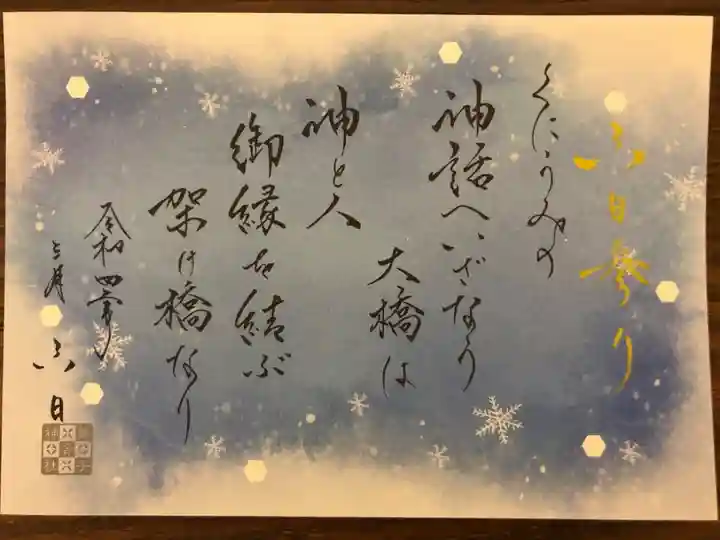 六日参り
くにうみの
神話へいざなう
大橋は
神と人
御縁を結ぶ
架け橋なり
令和四年
三月
六日